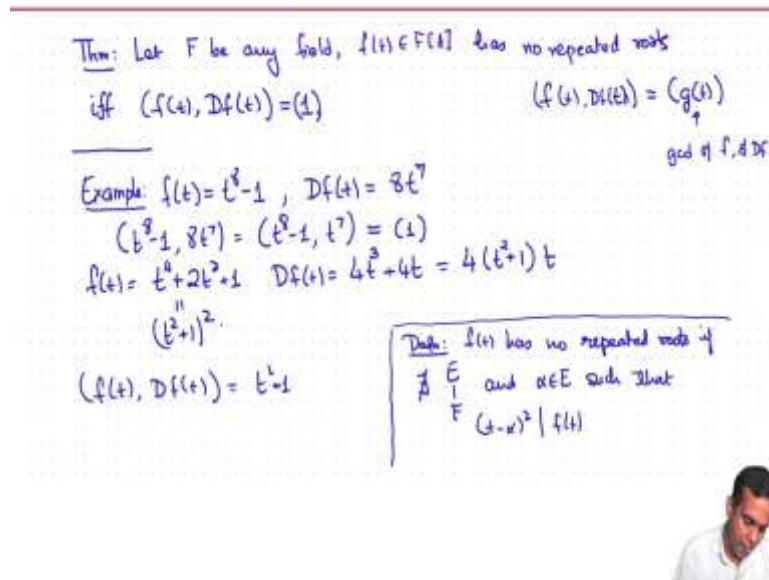 Thm: Let F be any field, f(t) ∈ F[t] has no repeated roots
iff (f(t), Df(t)) = (1)
(f(t), Df(t)) = (g(t))
↑
gcd of f, & Df
Example: f(t) = t⁸-1 , Df(t) = 8t⁷
(t⁸-1, 8t⁷) = (t⁸-1, t⁷) = (1)
f(t) = t⁴+2t²+1 Df(t) = 4t³+4t = 4(t²+1)t
"
(t²+1)².
(f(t), Df(t)) = t²+1
Defn: f(t) has no repeated roots if
∄ E | F and α∈E such that
(t-α)² | f(t)